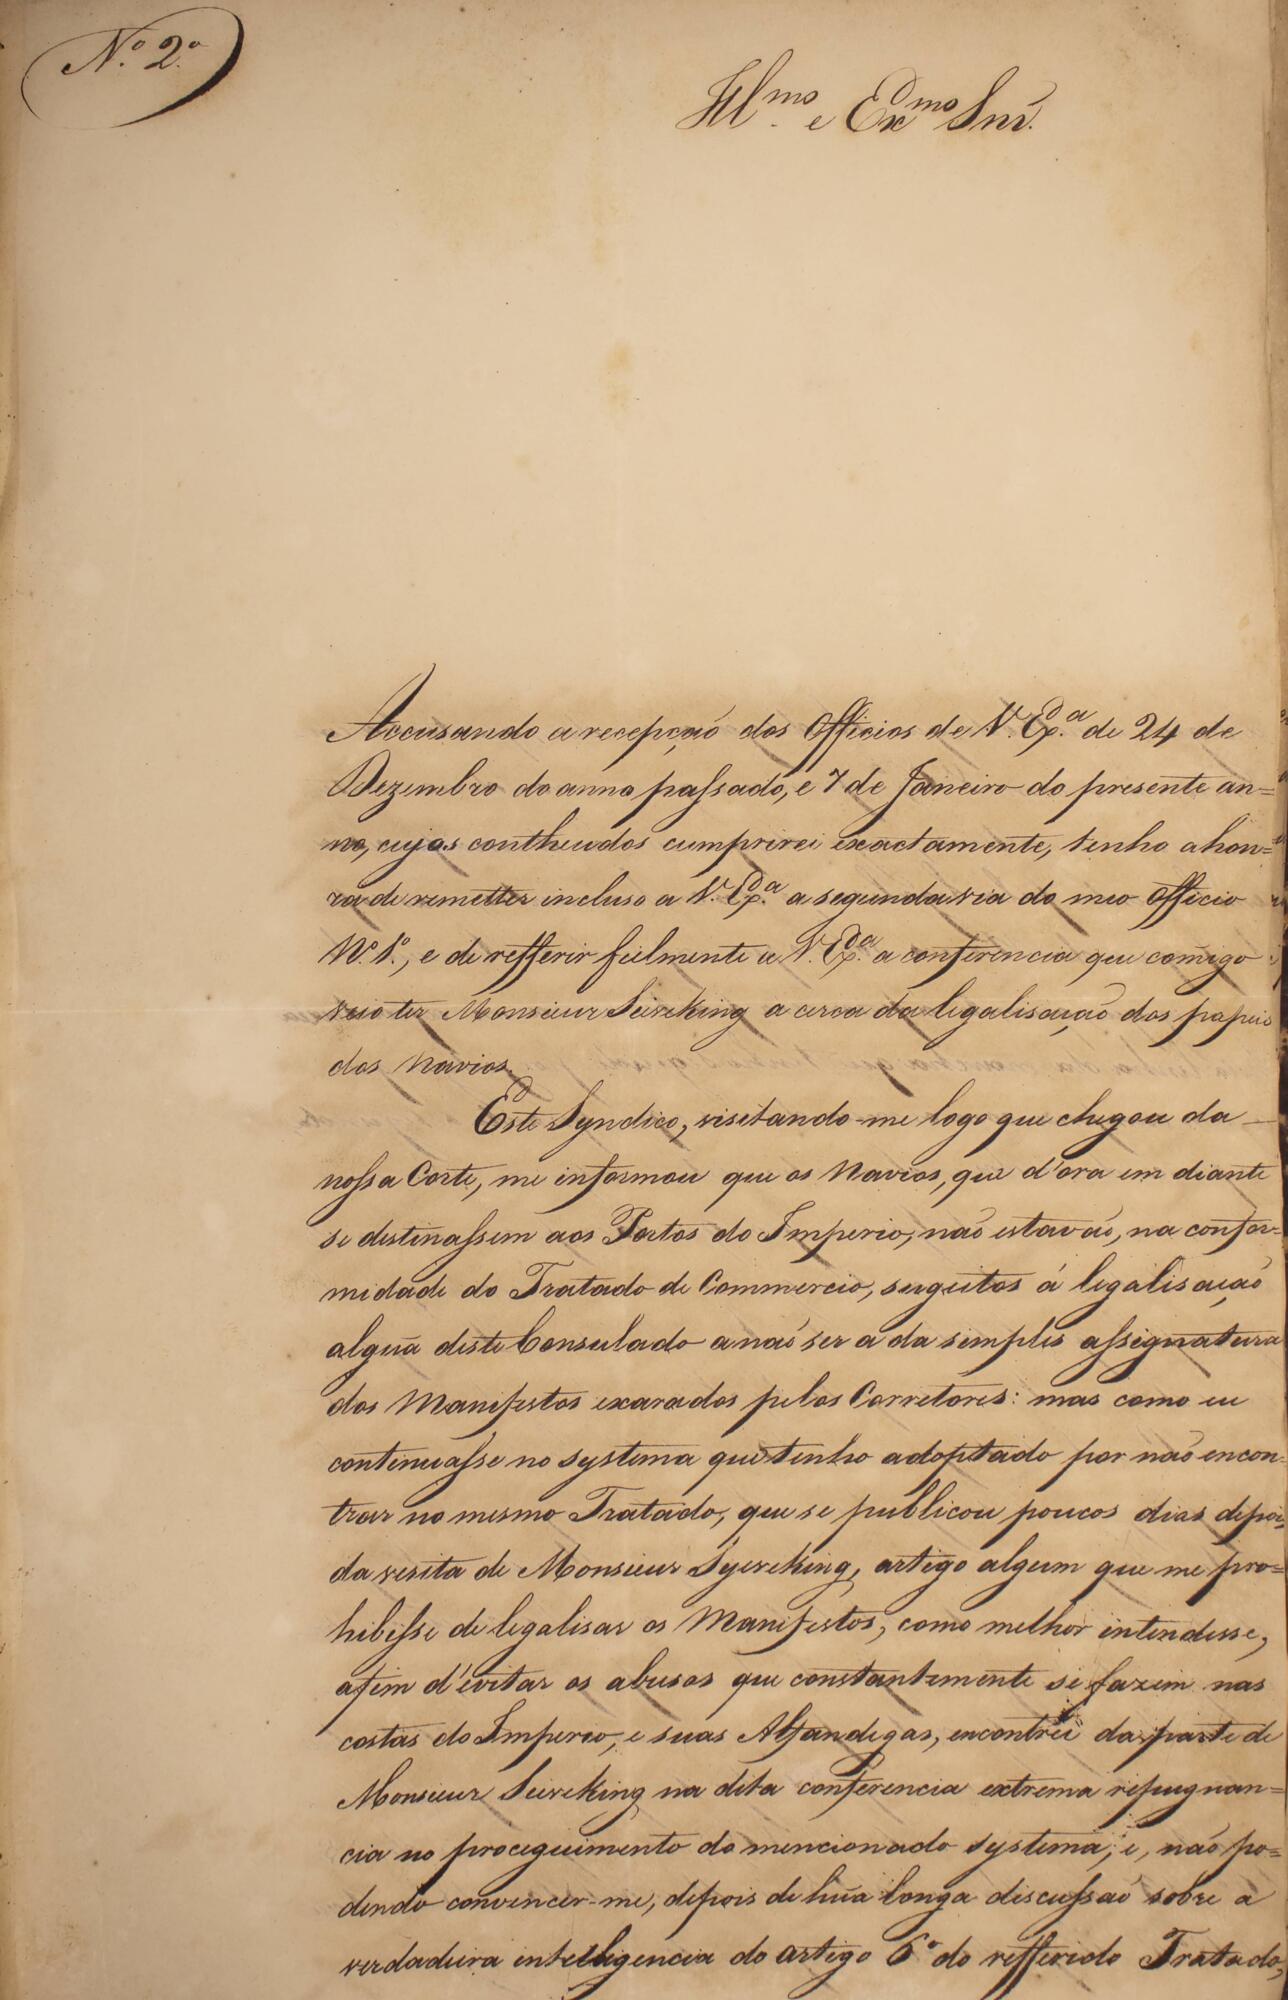 N.º 2.º
Ill.mo e Ex.mo Snr.
Accusando a recepçaõ dos Officios de V. Ex.ª de 24 de
Dezembro do anno passado, e 7 de Janeiro do presente an=
no, cujos contheudos cumprirei exactamente, tenho a hon=
ra de remetter incluso a V. Ex.ª a segunda via do meo Officio
N.º 1.º, e de refferir fielmente a V. Ex.ª a conferencia que comigo
veio ter Monsieur Sieveking a cerca da legalisação dos papeis
dos Navios.
Este Syndico, visitando-me logo que chegou da
nossa Corte, me informou que os Navios, que d'ora em diante
se destinassem aos Portos do Imperio, naõ estavaõ, na confor=
midade do Tratado de Commercio, sugeitos á legalisaçaõ
algũa deste Consulado a naõ ser a da simples assignatura
dos Manifestos exarados pelos Corretores: mas como eu
continuasse no systema que tenho adoptado por não encon=
trar no mesmo Tratado, que se publicou poucos dias depois
da visita de Monsieur Syeveking, artigo algum que me pro=
hibisse de legalisar os Manifestos, como melhor intendesse,
afim d'evitar os abusos que constantemente se fazem nas
costas do Imperio, e suas Alfandegas, encontrei da parte de
Monsieur Sieveking na dita conferencia extrema repugnan=
cia no proceguimento do mencionado systema; e, não po=
dendo convencer-me, depois de hũa longa discussaõ sobre a
verdadeira intelligencia do artigo 6.º do refferido Tratado,